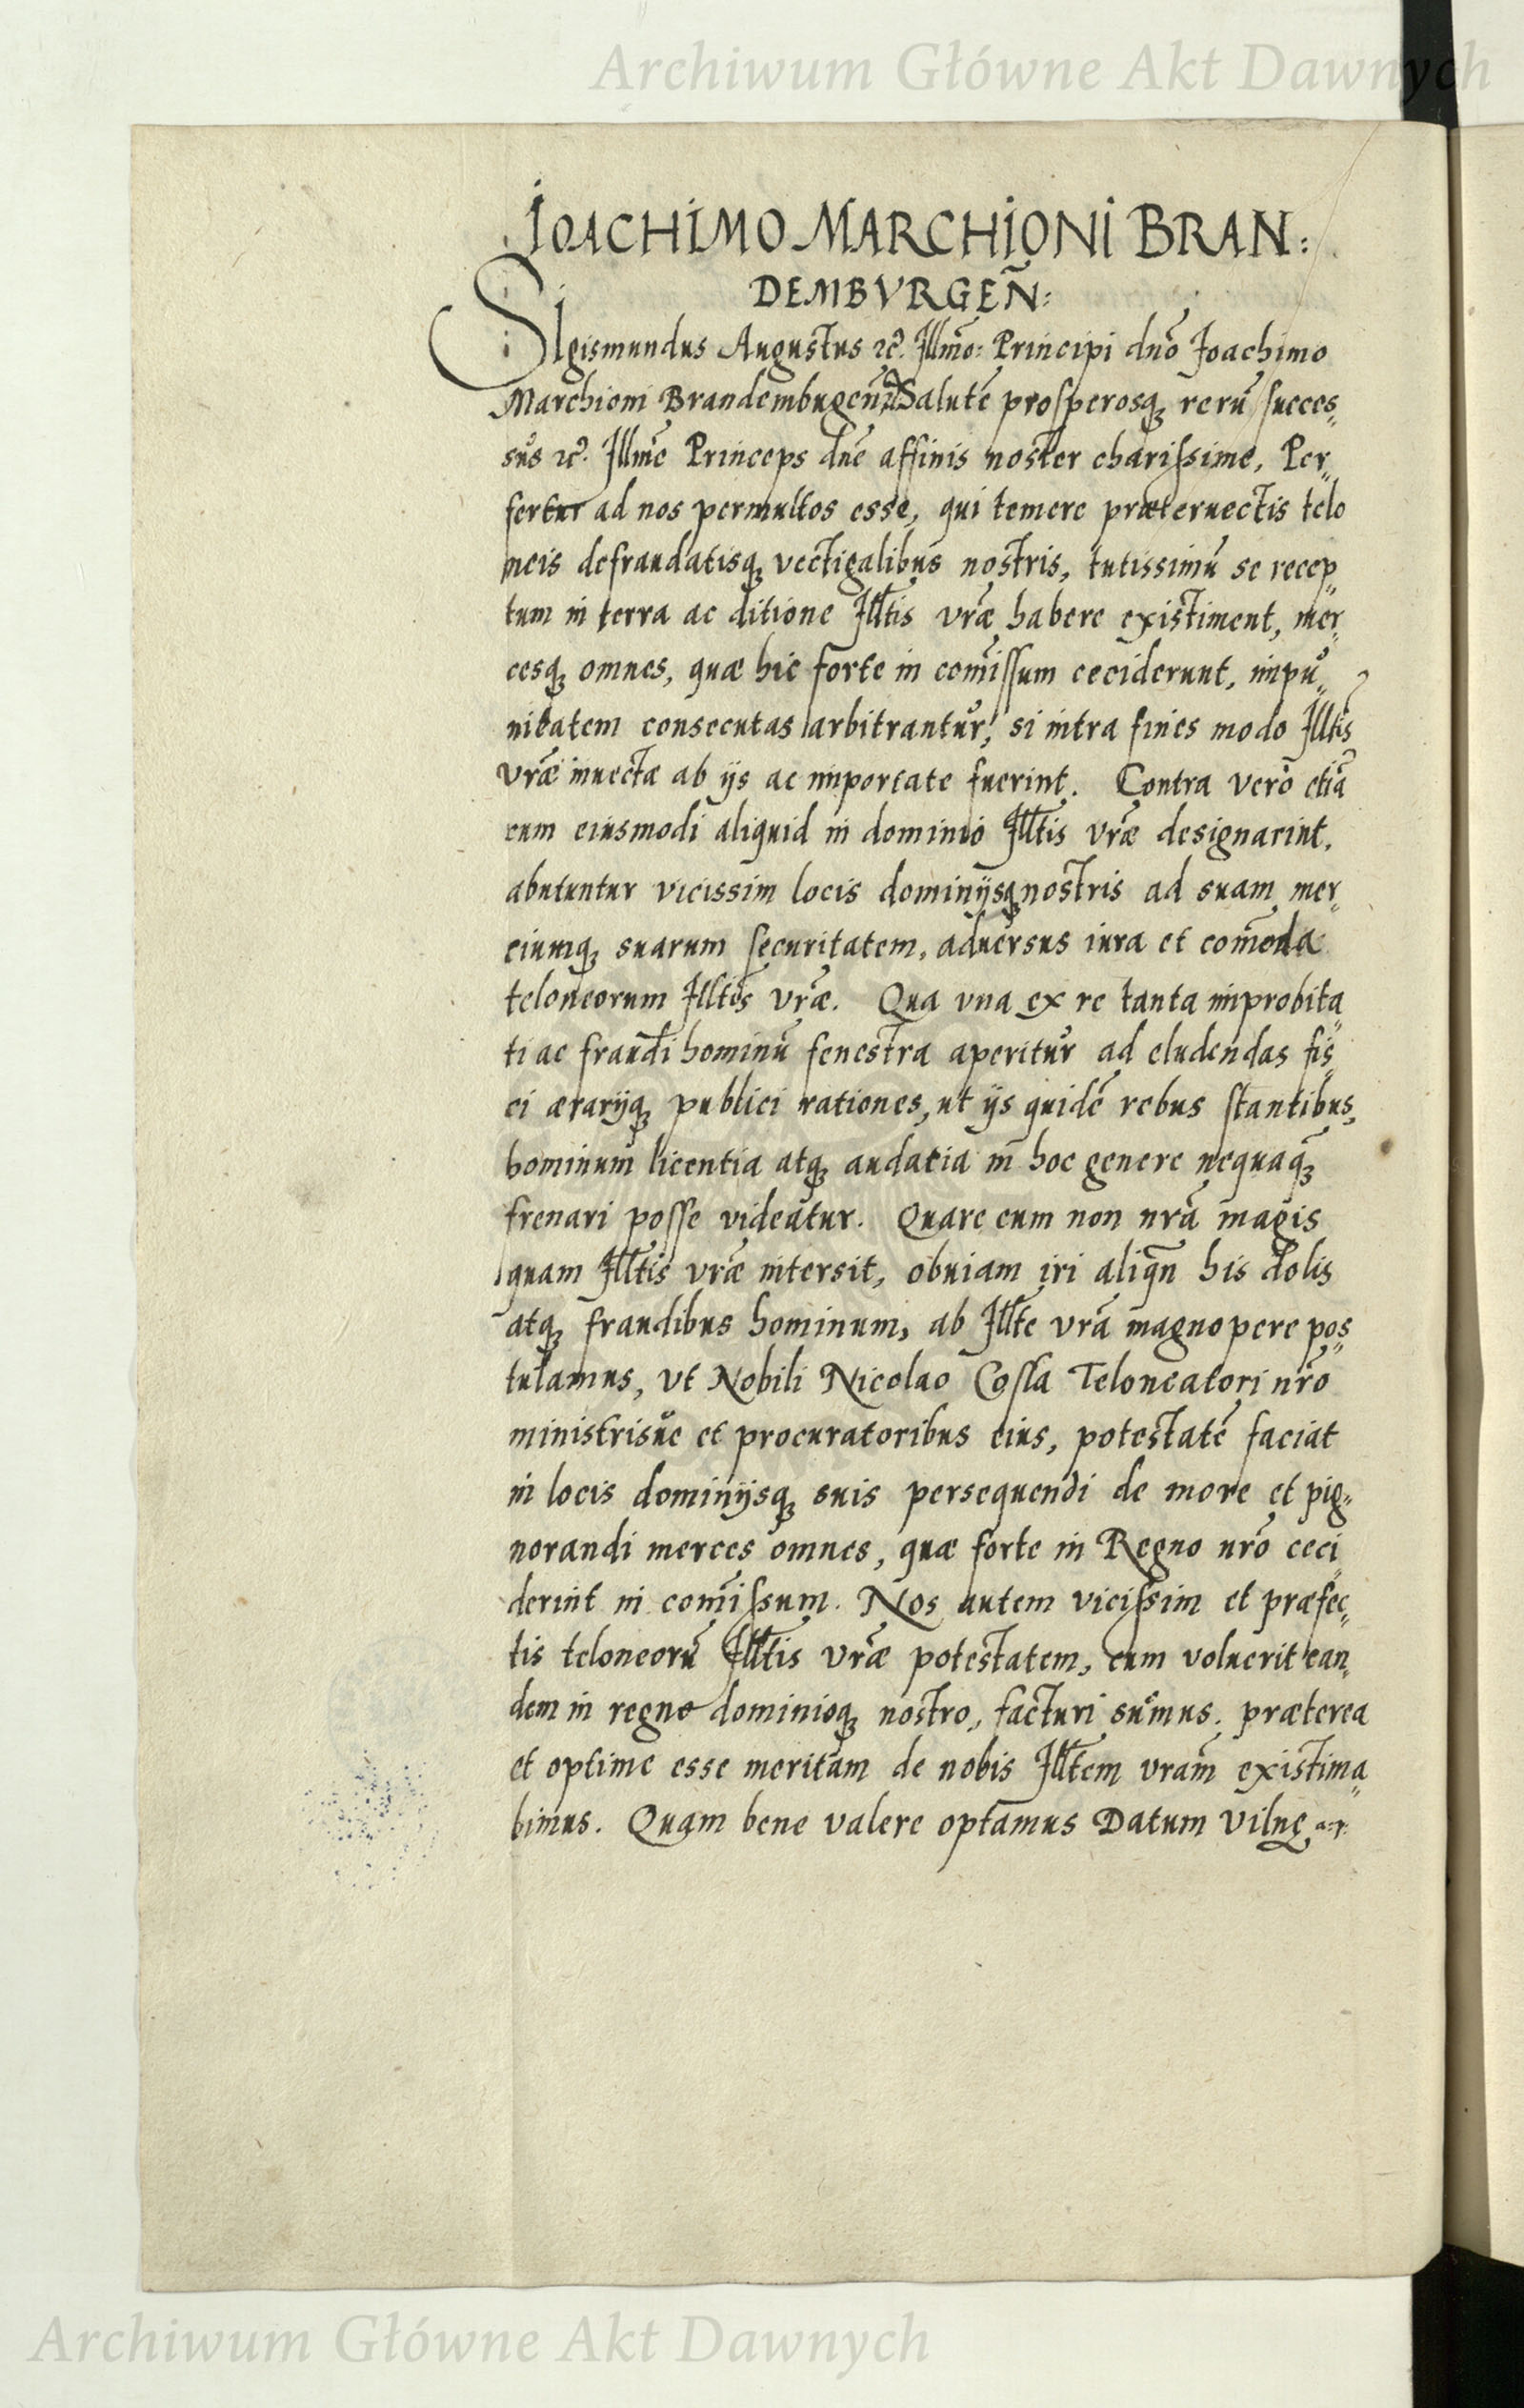 Archiwum Główne Akt Dawnych
IOACHIMO MARCHIONI BRAN:
DEMBVRGEÑ:
SIgismundus Augustus ꝛc̃. Illmõ: Principi dnõ Ioachimo
Marchioni Brandembugeñ Salutẽ prosperosqꝫ rerũ succes„
sus ꝛc̃. Illmẽ Princeps dnẽ affinis noster charissime, Per„
fertur ad nos permultos esse, qui temere præteruectis telo
neis defraudatisqꝫ vectigalibus nostris, tutissimũ se recep„
tum in terra ac ditione Illtis̃ vrãe habere existiment, mer„
cesqꝫ omnes, quæ hic forte in comĩssum ceciderunt, impu„
nitatem consecutas arbitrantur, si intra fines modo Illtis̃
vrãe inuectæ ab ijs ac importate fuerint. Contra vero etiã
cum eiusmodi aliquid in dominio Illtis̃ vrãe designarint,
abutuntur vicissim locis dominijsqꝫ nostris ad suam mer„
ciumqꝫ suarum securitatem, aduersus iura et com̃oda
teloneorum Illtis̃ vrãe. Qua vna ex re tanta improbita„
ti ac fraudi hominũ fenestra aperitur ad eludendas fis„
ci ærarijqꝫ publici rationes, ut ijs quidẽ rebus stantibus,
hominum licentia atqꝫ audacia in hoc genere nequaqꝫ̃
frenari posse videatur. Quare cum non nrã magis
quam Illtis̃ vrãe intersit, obuiam iri aliqñ his dolis
atqꝫ fraudibus hominum, ab Illtẽ vrã magnopere pos„
tulamus, vt Nobili Nicolao Cosla Teloneatori nrõ
ministrisue et procuratoribus eius, potestatẽ faciat
in locis dominijsqꝫ suis persequendi de more et pig„
norandi merces omnes, quæ forte in Regno nrõ ceci„
derint in comĩssum. Nos autem vicissim et præfec„
tis teloneorũ Illtis̃ vrãe potestatem, cum voluerit ean„
dem in regno dominioqꝫ nostro, facturi sumus. præterea
et optime esse meritam de nobis Illtẽm vrãm existima„
bimus. Quam bene valere optamus Datum Vilnę
Archiwum Główne Akt Dawnych